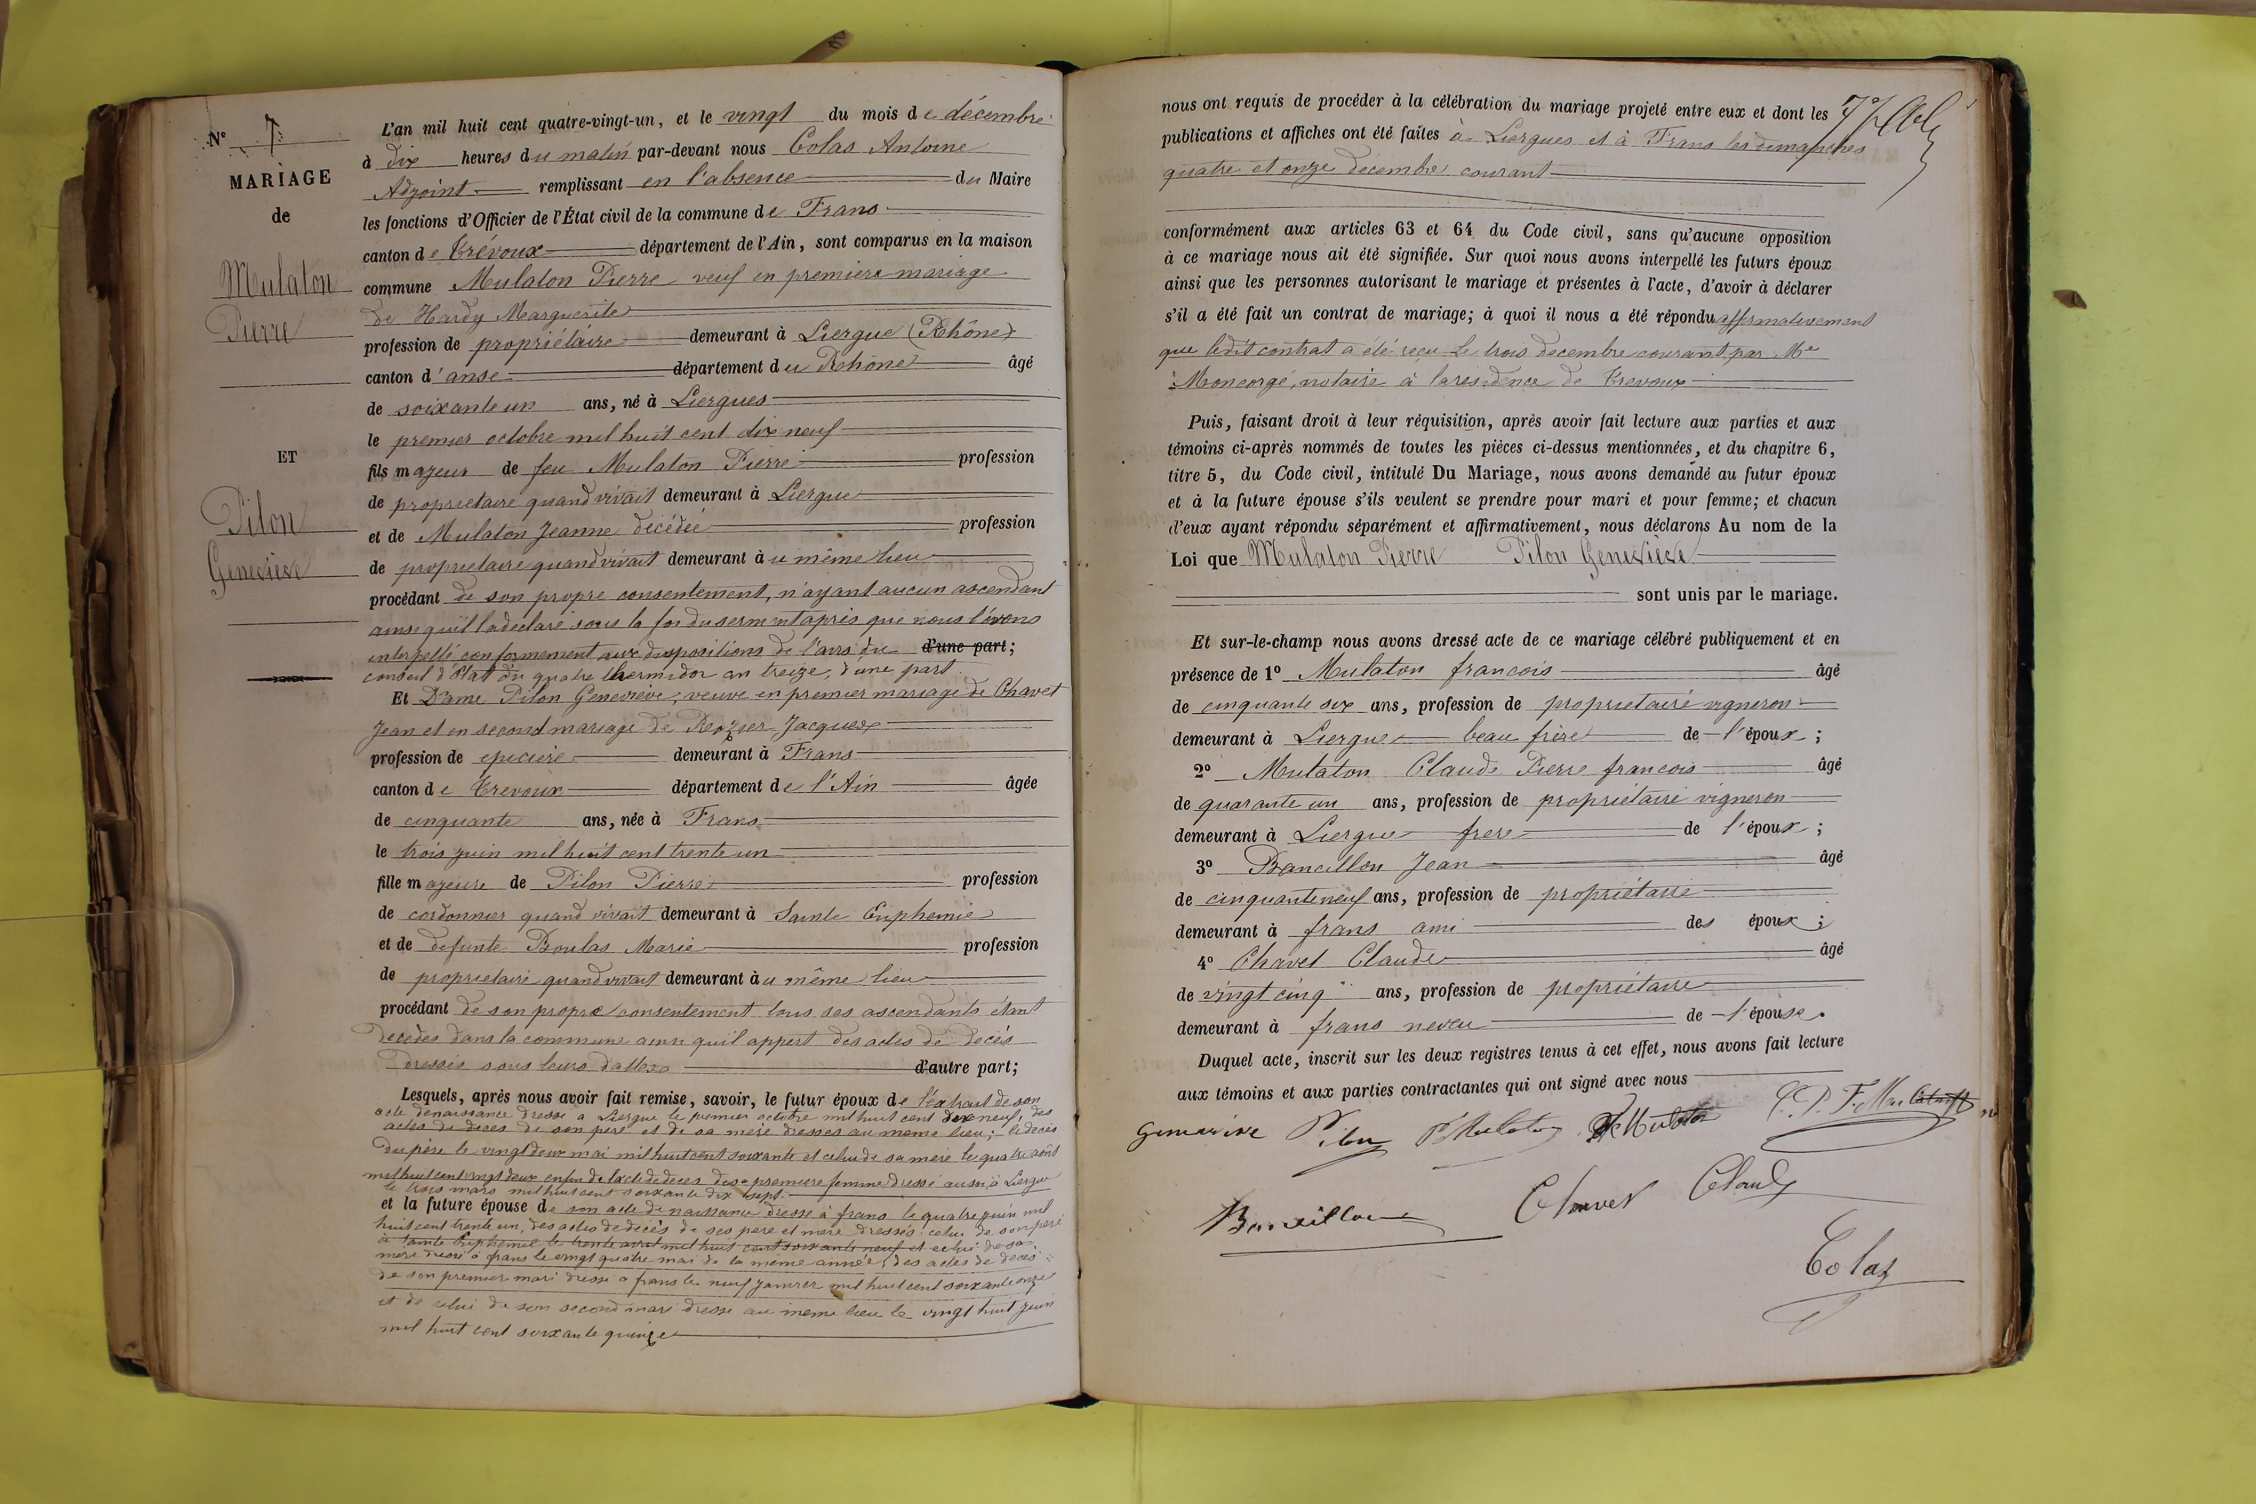 N° 7
MARIAGE
de
Mulaton
Pierre
ET
Pilon
Geneviève
L'an mil huit cent quatre-vingt-un, et le vingt du mois de décembre
à dix heures du matin par-devant nous Colas Antoine
Adjoint remplissant en l'absence du Maire
les fonctions d'Officier de l'État civil de la commune de Frans
canton de Trévoux département de l'Ain, sont comparus en la maison
commune Mulaton Pierre veuf en premiere mariage
de Hardy Marguerite
profession de propriétaire demeurant à Liergue (Rhône)
canton d'anse département du Rhône âgé
de soixante un ans, né à Liergues
le premier octobre mil huit cent dix neuf
fils majeur de feu Mulaton Pierre profession
de propriétaire quand vivait demeurant à Liergue
et de Mulaton Jeanne décédée profession
de proprietaire quand vivait demeurant au même lieu
procédant de son propre consentement, n'ayant aucun ascendant
ainsi qu'il l'a déclaré sous la foi du serment après que nous l'avons
interpellé conformement aux dispositions de l'avis du d'une part;
conseil d'État du quatre thermidor an treize, d'une part
Et Dame Pilon Geneviève, veuve en premier mariage de Chavet
Jean et en second mariage de Rozier Jacques
profession de epicière demeurant à Frans
canton de Trevoux département de l'Ain âgée
de cinquante ans, née à Frans
le trois juin mil huit cent trente un
fille majeure de Pilon Pierre profession
de cordonnier quand vivait demeurant à Sainte Euphemie
et de defunte Boulas Marie profession
de propriétaire quand vivait demeurant au même lieu
procédant de son propre consentement tous ses ascendants étant
décédés dans la commune ainsi qu'il appert des actes de décés
dressés sous leurs dattes d'autre part;
Lesquels, après nous avoir fait remise, savoir, le futur époux de l'extrait de son
acte de naissance dressé a Liergue le premier octobre mil huit cent dix neuf, des
actes de décés de son père et de sa mère dressés au meme lieu; le décés
du père le vingt deux mai mil huit cent soixante et celui de sa mère le quatre août
mil huit cent vingt deux enfin de l'acte de deces de sa premiere femme dressé aussi à Liergue
le trois mars mil huit cent soixante dix sept.
et la future épouse de son acte de naissance dressé à frans le quatre juin mil
huit cent trente un, des actes de décés de ses père et mère dressés celui de son père
à Sainte Euphemie le trente avril mil huit cent soixante neuf et celui de sa
mère à frans le vingt quatre mai de la même année, des actes de décés
de son premier mari dressé a frans le neuf janvier mil huit cent soixante onze
et de celui de son second mari dressé au meme lieu le vingt huit juin
mil huit cent soixante quinze
nous ont requis de procéder à la célébration du mariage projeté entre eux et dont les
publications et affiches ont été faites à Liergues et à Frans les dimanches
quatre et onze décembre courant
conformément aux articles 63 et 64 du Code civil, sans qu'aucune opposition
à ce mariage nous ait été signifiée. Sur quoi nous avons interpellé les futurs époux
ainsi que les personnes autorisant le mariage et présentes à l'acte, d'avoir à déclarer
s'il a été fait un contrat de mariage; à quoi il nous a été répondu affirmativement
que ledit contrat a été reçu le trois decembre courant par Me
Moncorgé, notaire à la residence de Trevoux
Puis, faisant droit à leur réquisition, après avoir fait lecture aux parties et aux
témoins ci-après nommés de toutes les pièces ci-dessus mentionnées, et du chapitre 6,
titre 5, du Code civil, intitulé Du Mariage, nous avons demandé au futur époux
et à la future épouse s'ils veulent se prendre pour mari et pour femme; et chacun
d'eux ayant répondu séparément et affirmativement, nous déclarons Au nom de la
Loi que Mulaton Pierre Pilon Geneviève
sont unis par le mariage.
Et sur-le-champ nous avons dressé acte de ce mariage célébré publiquement et en
présence de 1° Mulaton francois âgé
de cinquante six ans, profession de proprietaire vigneron
demeurant à Liergue beau frère de l'époux;
2° Mulaton Claude Pierre francois âgé
de quarante un ans, profession de propriétaire vigneron
demeurant à Liergue frere de l'époux;
3° Bancillon Jean âgé
de cinquante neuf ans, profession de propriétaire
demeurant à frans ami des époux;
4° Chavet Claude âgé
de vingt cinq ans, profession de propriétaire
demeurant à frans neveu de l'épouse.
Duquel acte, inscrit sur les deux registres tenus à cet effet, nous avons fait lecture
aux témoins et aux parties contractantes qui ont signé avec nous
Genevieve Pilon P Mulaton F Mulaton C. P. F. Mulaton
Bancillon Chavet Claude
Colas